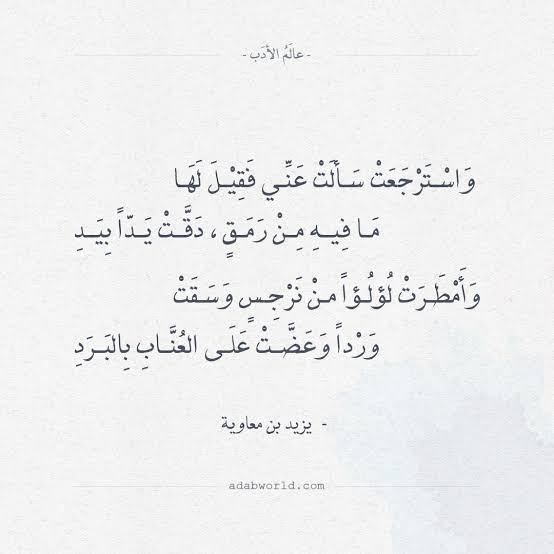 - عالَمُ الأدَب -
وَاسْـتَرْجَعَتْ سَـألَتْ عَنِّـي فَقِيْـلَ لَهَـا
مَـا فِيـهِ مِـنْ رَمَـقٍ ، دَقَّـتْ يَـدّاً بِيَـدِ
وَأَمْطَـرَتْ لُؤلُـؤاً مـنْ نَرْجِـسٍ وَسَـقَتْ
وَرْداً وَعَضَّـتْ عَلَـى العُنَّـابِ بِالبَـرَدِ
- يزيد بن معاوية
adabworld.com